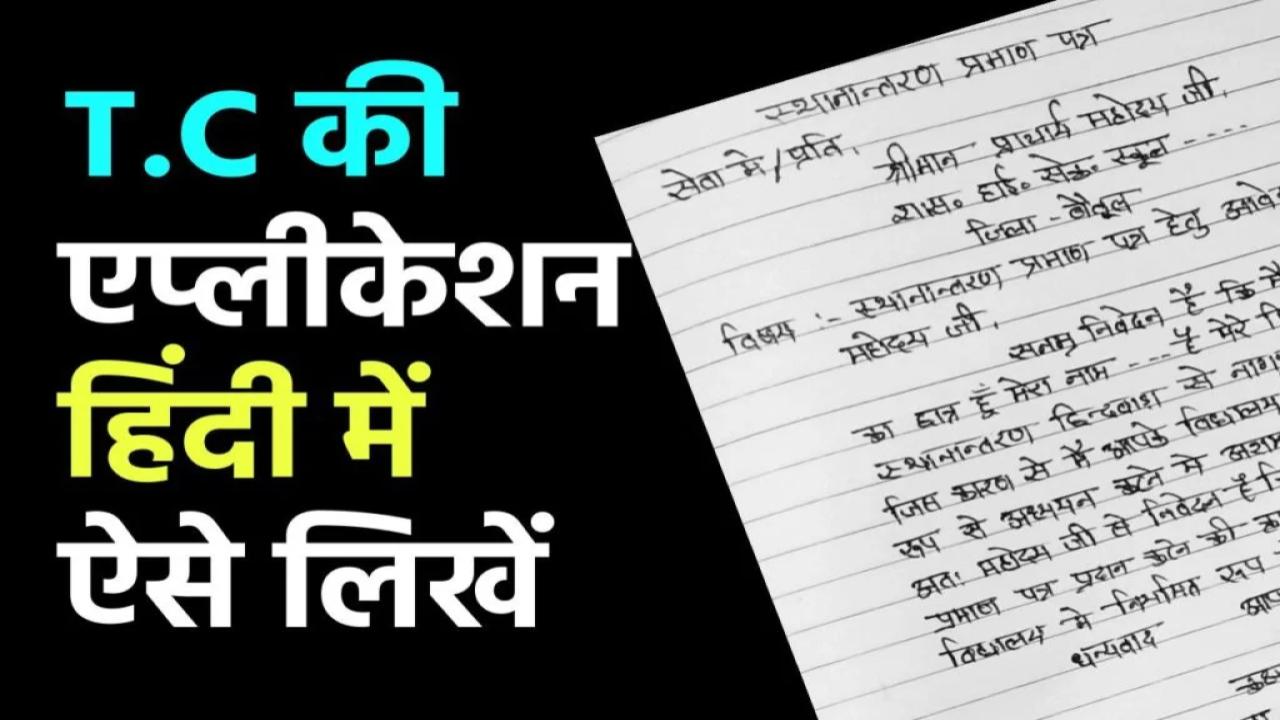 T.C की
एप्लीकेशन
हिंदी में
ऐसे लिखें
स्थानान्तरण प्रमाण पत्र
सेवा में/प्रति,
श्रीमान प्राचार्य महोदय जी,
शास॰ हाई॰ सेक॰ स्कूल ----
जिला - बैतूल
विषय :- स्थानान्तरण प्रमाण पत्र हेतु
महोदय जी,
सनम्र निवेदन है कि मैं
का छात्र हूँ मेरा नाम ---- है मेरे
स्थानान्तरण छिन्दवाड़ा से
जिस कारण से मैं आपके विद्यालय
रूप से अध्ययन करने में
अतः महोदय जी से निवेदन है
प्रमाण पत्र प्रदान करने की
विद्यालय में नियमित रूप
धन्यवाद